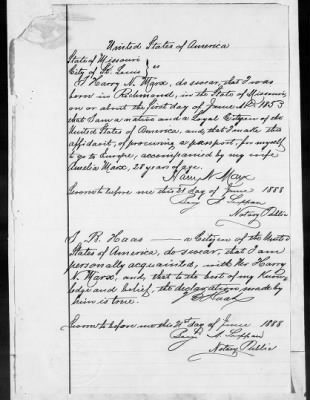 United States of America
State of Missouri
City of St. Louis } ss
I Harry N. Marx, do swear, that I was
born in Richmond, in the State of Missouri,
on or about the first day of June A.D. 1853
that I am a native and a Loyal Citizen of the
United States of America, and, that I make this
affidavit, of procuring a passport, for myself
to go to Europe, accompanied by my wife
Amelia Marx, 28 years of age.
Harry N. Marx
Sworn to before me this 21 day of June 1888
Notary Public
I, B. Haas — a Citizen of the United
States of America, do swear, that I am
personally acquainted, with Mr Harry
N. Marx, and, that to the best of my Knowl
edge and belief, the declaration made by
him is true.
Haas
Sworn to before me this 21st day of June 1888
Notary Public